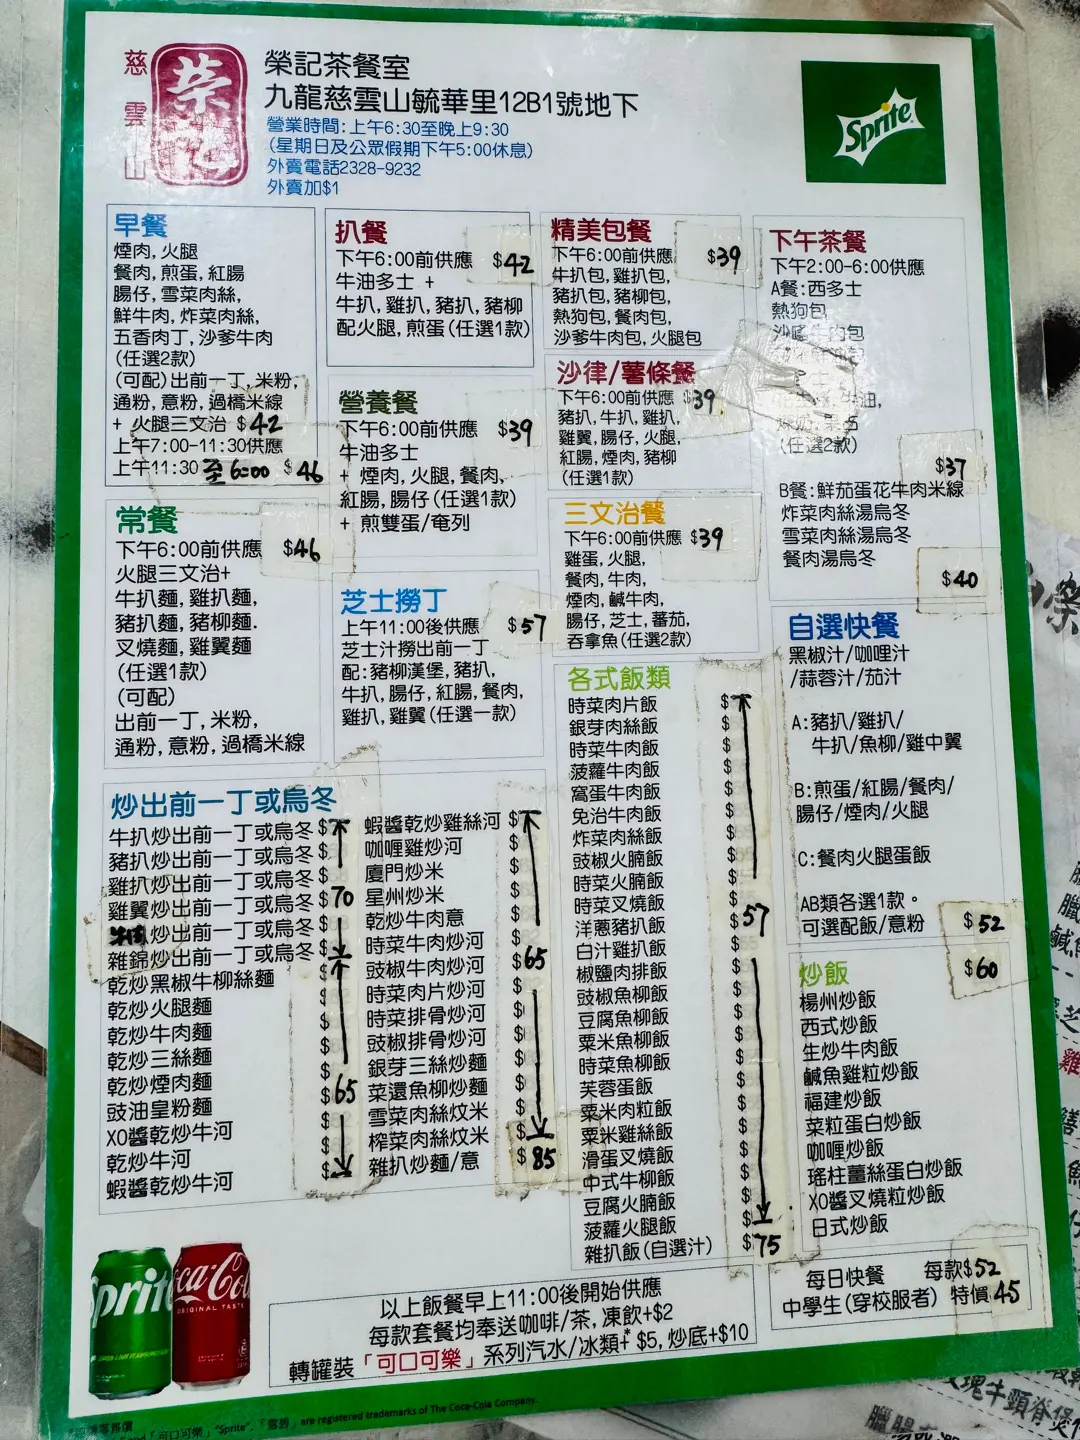 慈雲山
榮記
榮記茶餐室
九龍慈雲山毓華里12B1號地下
營業時間:上午6:30至晚上9:30
(星期日及公眾假期下午5:00休息)
外賣電話2328-9232
外賣加$1
Sprite
早餐
煙肉,火腿
餐肉,煎蛋,紅腸
腸仔,雪菜肉絲,
鮮牛肉,炸菜肉絲,
五香肉丁,沙爹牛肉
(任選2款)
(可配)出前一丁,米粉,
通粉,意粉,過橋米線
+ 火腿三文治 $42
上午7:00-11:30供應
上午11:30至6:00 $46
常餐
下午6:00前供應 $46
火腿三文治+
牛扒麵,雞扒麵,
豬扒麵,豬柳麵.
叉燒麵,雞翼麵
(任選1款)
(可配)
出前一丁,米粉,
通粉,意粉,過橋米線
扒餐
下午6:00前供應 $42
牛油多士 +
牛扒,雞扒,豬扒,豬柳
配火腿,煎蛋(任選1款)
營養餐
下午6:00前供應 $39
牛油多士
+ 煙肉,火腿,餐肉,
紅腸,腸仔(任選1款)
+ 煎雙蛋/奄列
芝士撈丁
上午11:00後供應 $57
芝士汁撈出前一丁
配:豬柳漢堡,豬扒,
牛扒,腸仔,紅腸,餐肉,
雞扒,雞翼(任選一款)
精美包餐
下午6:00前供應 $39
牛扒包,雞扒包,
豬扒包,豬柳包,
熱狗包,餐肉包,
沙爹牛肉包,火腿包
沙律/薯條餐
下午6:00前供應 $39
豬扒,牛扒,雞扒,
雞翼,腸仔,火腿,
紅腸,煙肉,豬柳
(任選1款)
三文治餐
下午6:00前供應 $39
雞蛋,火腿,
餐肉,牛肉,
煙肉,鹹牛肉,
腸仔,芝士,蕃茄,
吞拿魚(任選2款)
下午茶餐
下午2:00-6:00供應
A餐:西多士
熱狗包
沙嗲牛肉包
油,
(任選2款)
$37
B餐:鮮茄蛋花牛肉米線
炸菜肉絲湯烏冬
雪菜肉絲湯烏冬
餐肉湯烏冬
$40
自選快餐
黑椒汁/咖哩汁
/蒜蓉汁/茄汁
A:豬扒/雞扒/
牛扒/魚柳/雞中翼
B:煎蛋/紅腸/餐肉/
腸仔/煙肉/火腿
C:餐肉火腿蛋飯
AB類各選1款。
可選配飯/意粉 $52
炒出前一丁或烏冬
牛扒炒出前一丁或烏冬 $
豬扒炒出前一丁或烏冬 $
雞扒炒出前一丁或烏冬
雞翼炒出前一丁或烏冬 $70
炒出前一丁或烏冬 $
雜錦炒出前一丁或烏冬 $
乾炒黑椒牛柳絲麵
乾炒火腿麵 $
乾炒牛肉麵 $
乾炒三絲麵 $
乾炒煙肉麵 $65
豉油皇粉麵 $
XO醬乾炒牛河 $
乾炒牛河 $
蝦醬乾炒牛河
蝦醬乾炒雞絲河 $
咖喱雞炒河 $
廈門炒米 $
星州炒米 $
乾炒牛肉意 $
時菜牛肉炒河 $
豉椒牛肉炒河 $65
時菜肉片炒河 $
時菜排骨炒河 $
豉椒排骨炒河 $
銀芽三絲炒麵 $
菜還魚柳炒麵 $
雪菜肉絲炆米 $
榨菜肉絲炆米 $
雜扒炒麵/意 $85
各式飯類
時菜肉片飯 $
銀芽肉絲飯 $
時菜牛肉飯 $
菠蘿牛肉飯 $
窩蛋牛肉飯 $
免治牛肉飯 $
炸菜肉絲飯 $
豉椒火腩飯 $
時菜火腩飯 $
時菜叉燒飯 $
洋蔥豬扒飯 $57
白汁雞扒飯 $
椒鹽肉排飯 $
豉椒魚柳飯 $
豆腐魚柳飯 $
粟米魚柳飯 $
時菜魚柳飯 $
芙蓉蛋飯 $
粟米肉粒飯 $
粟米雞絲飯 $
滑蛋叉燒飯 $
中式牛柳飯 $
豆腐火腩飯 $
菠蘿火腿飯 $
雜扒飯(自選汁) $75
炒飯 $60
楊州炒飯
西式炒飯
生炒牛肉飯
鹹魚雞粒炒飯
福建炒飯
菜粒蛋白炒飯
咖喱炒飯
瑤柱薑絲蛋白炒飯
XO醬叉燒粒炒飯
日式炒飯
每日快餐 每款$52
中學生(穿校服者) 特價45
以上飯餐早上11:00後開始供應
每款套餐均奉送咖啡/茶,凍飲+$2
轉罐裝「可口可樂」系列汽水/冰類+ $5,炒底+$10
Sprite
Coca-Cola
ORIGINAL TASTE
「可口可樂」"Sprite",「雪碧」are registered trademarks of The Coca-Cola Company.